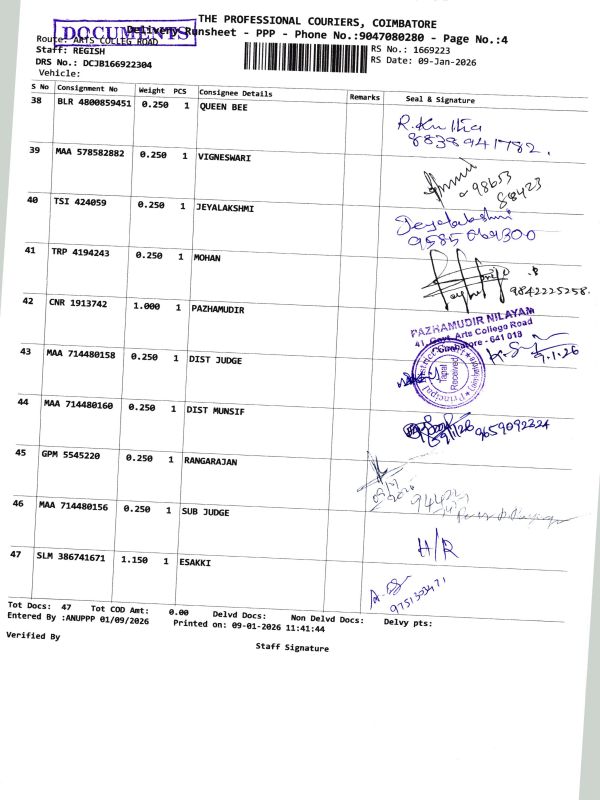 THE PROFESSIONAL COURIERS, COIMBATORE
DOCUMENTS
Delivery Runsheet - PPP - Phone No.:9047080280 - Page No.:4
Route: ARTS COLLEG ROAD
RS No.: 1669223
Staff: REGISH
RS Date: 09-Jan-2026
DRS No.: DCJB166922304
Vehicle:
S No Consignment No Weight PCS Consignee Details Remarks Seal & Signature
38 BLR 4800859451 0.250 1 QUEEN BEE
8838941782.
39 MAA 578582882 0.250 1 VIGNESWARI
98653
88423
40 TSI 424059 0.250 1 JEYALAKSHMI
Jeyalakshmi
41 TRP 4194243 0.250 1 MOHAN
9842225258.
42 CNR 1913742 1.000 1 PAZHAMUDIR
PAZHAMUDIR NILAYAM
41, Govt. Arts College Road
Coimbatore - 641 018
43 MAA 714480158 0.250 1 DIST JUDGE
9.1.26
Tapal
Received
Principal District
44 MAA 714480160 0.250 1 DIST MUNSIF
9659092324
45 GPM 5545220 0.250 1 RANGARAJAN
46 MAA 714480156 0.250 1 SUB JUDGE
H/R
47 SLM 386741671 1.150 1 ESAKKI
Tot Docs: 47 Tot COD Amt: 0.00 Delvd Docs: Non Delvd Docs: Delvy pts:
Entered By :ANUPPP 01/09/2026 Printed on: 09-01-2026 11:41:44
Verified By
Staff Signature